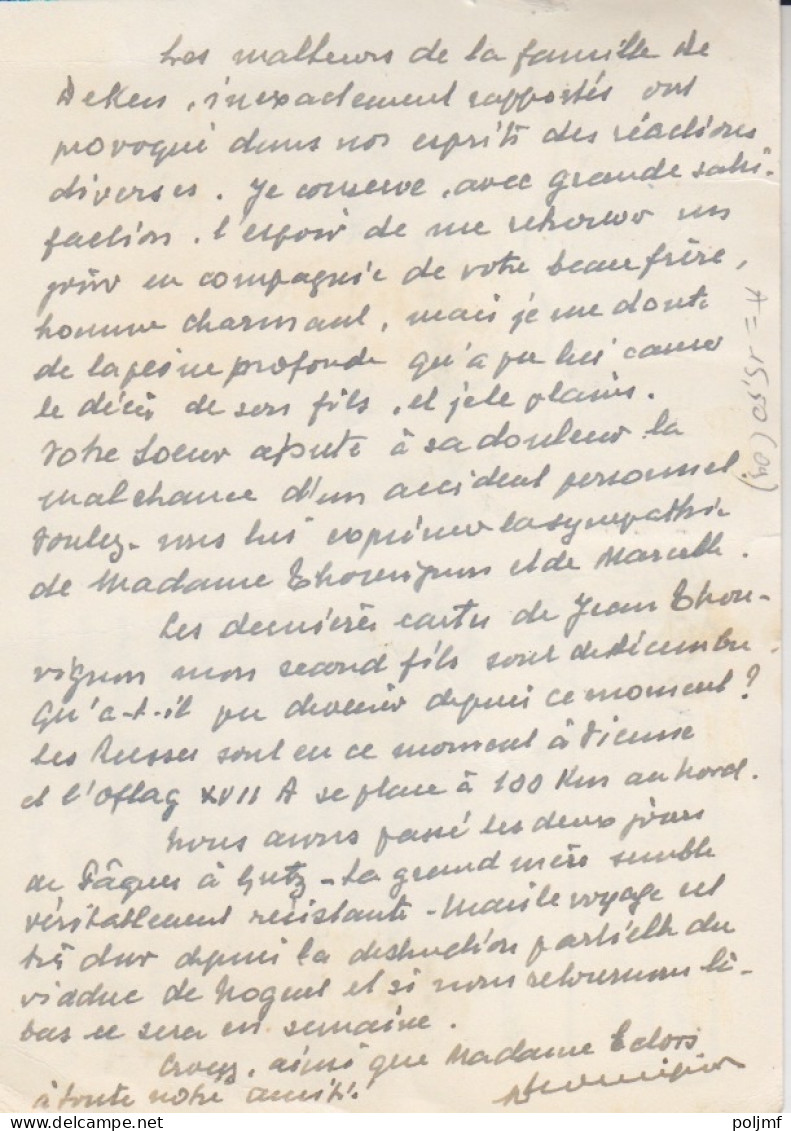 Les malheurs de la famille de
, inexactement rapportés ont
provoqué dans nos esprits des réactions
diverses. Je conserve, avec grande satis-
faction, l'espoir de me retrouver un
jour en compagnie de votre beau frère,
homme charmant, mais je me doute
de la peine profonde qu'a pu lui causer
le décès de son fils, et je le plains.
Votre Soeur ajoute à sa douleur la
malchance d'un accident personnel.
Voulez-vous lui exprimer la sympathie
de Madame Thouvignon et de Marcelle.
Les dernières cartes de Jean Thou-
vignon mon second fils sont de décembre.
Qu'a-t-il pu devenir depuis ce moment?
Les Russes sont en ce moment à Vienne
et l'Oflag XVII A se place à 100 Km au nord.
Nous avons passé les deux jours
de Pâques à - La grand mère semble
véritablement résistante - Mais le voyage est
très dur depuis la destruction partielle du
viaduc de et si nous retournons là-
bas ce sera en semaine.
Croyez, ainsi que Madame
à toute notre amitié.
Thouvignon
A = 15,50 (09)
poljmf